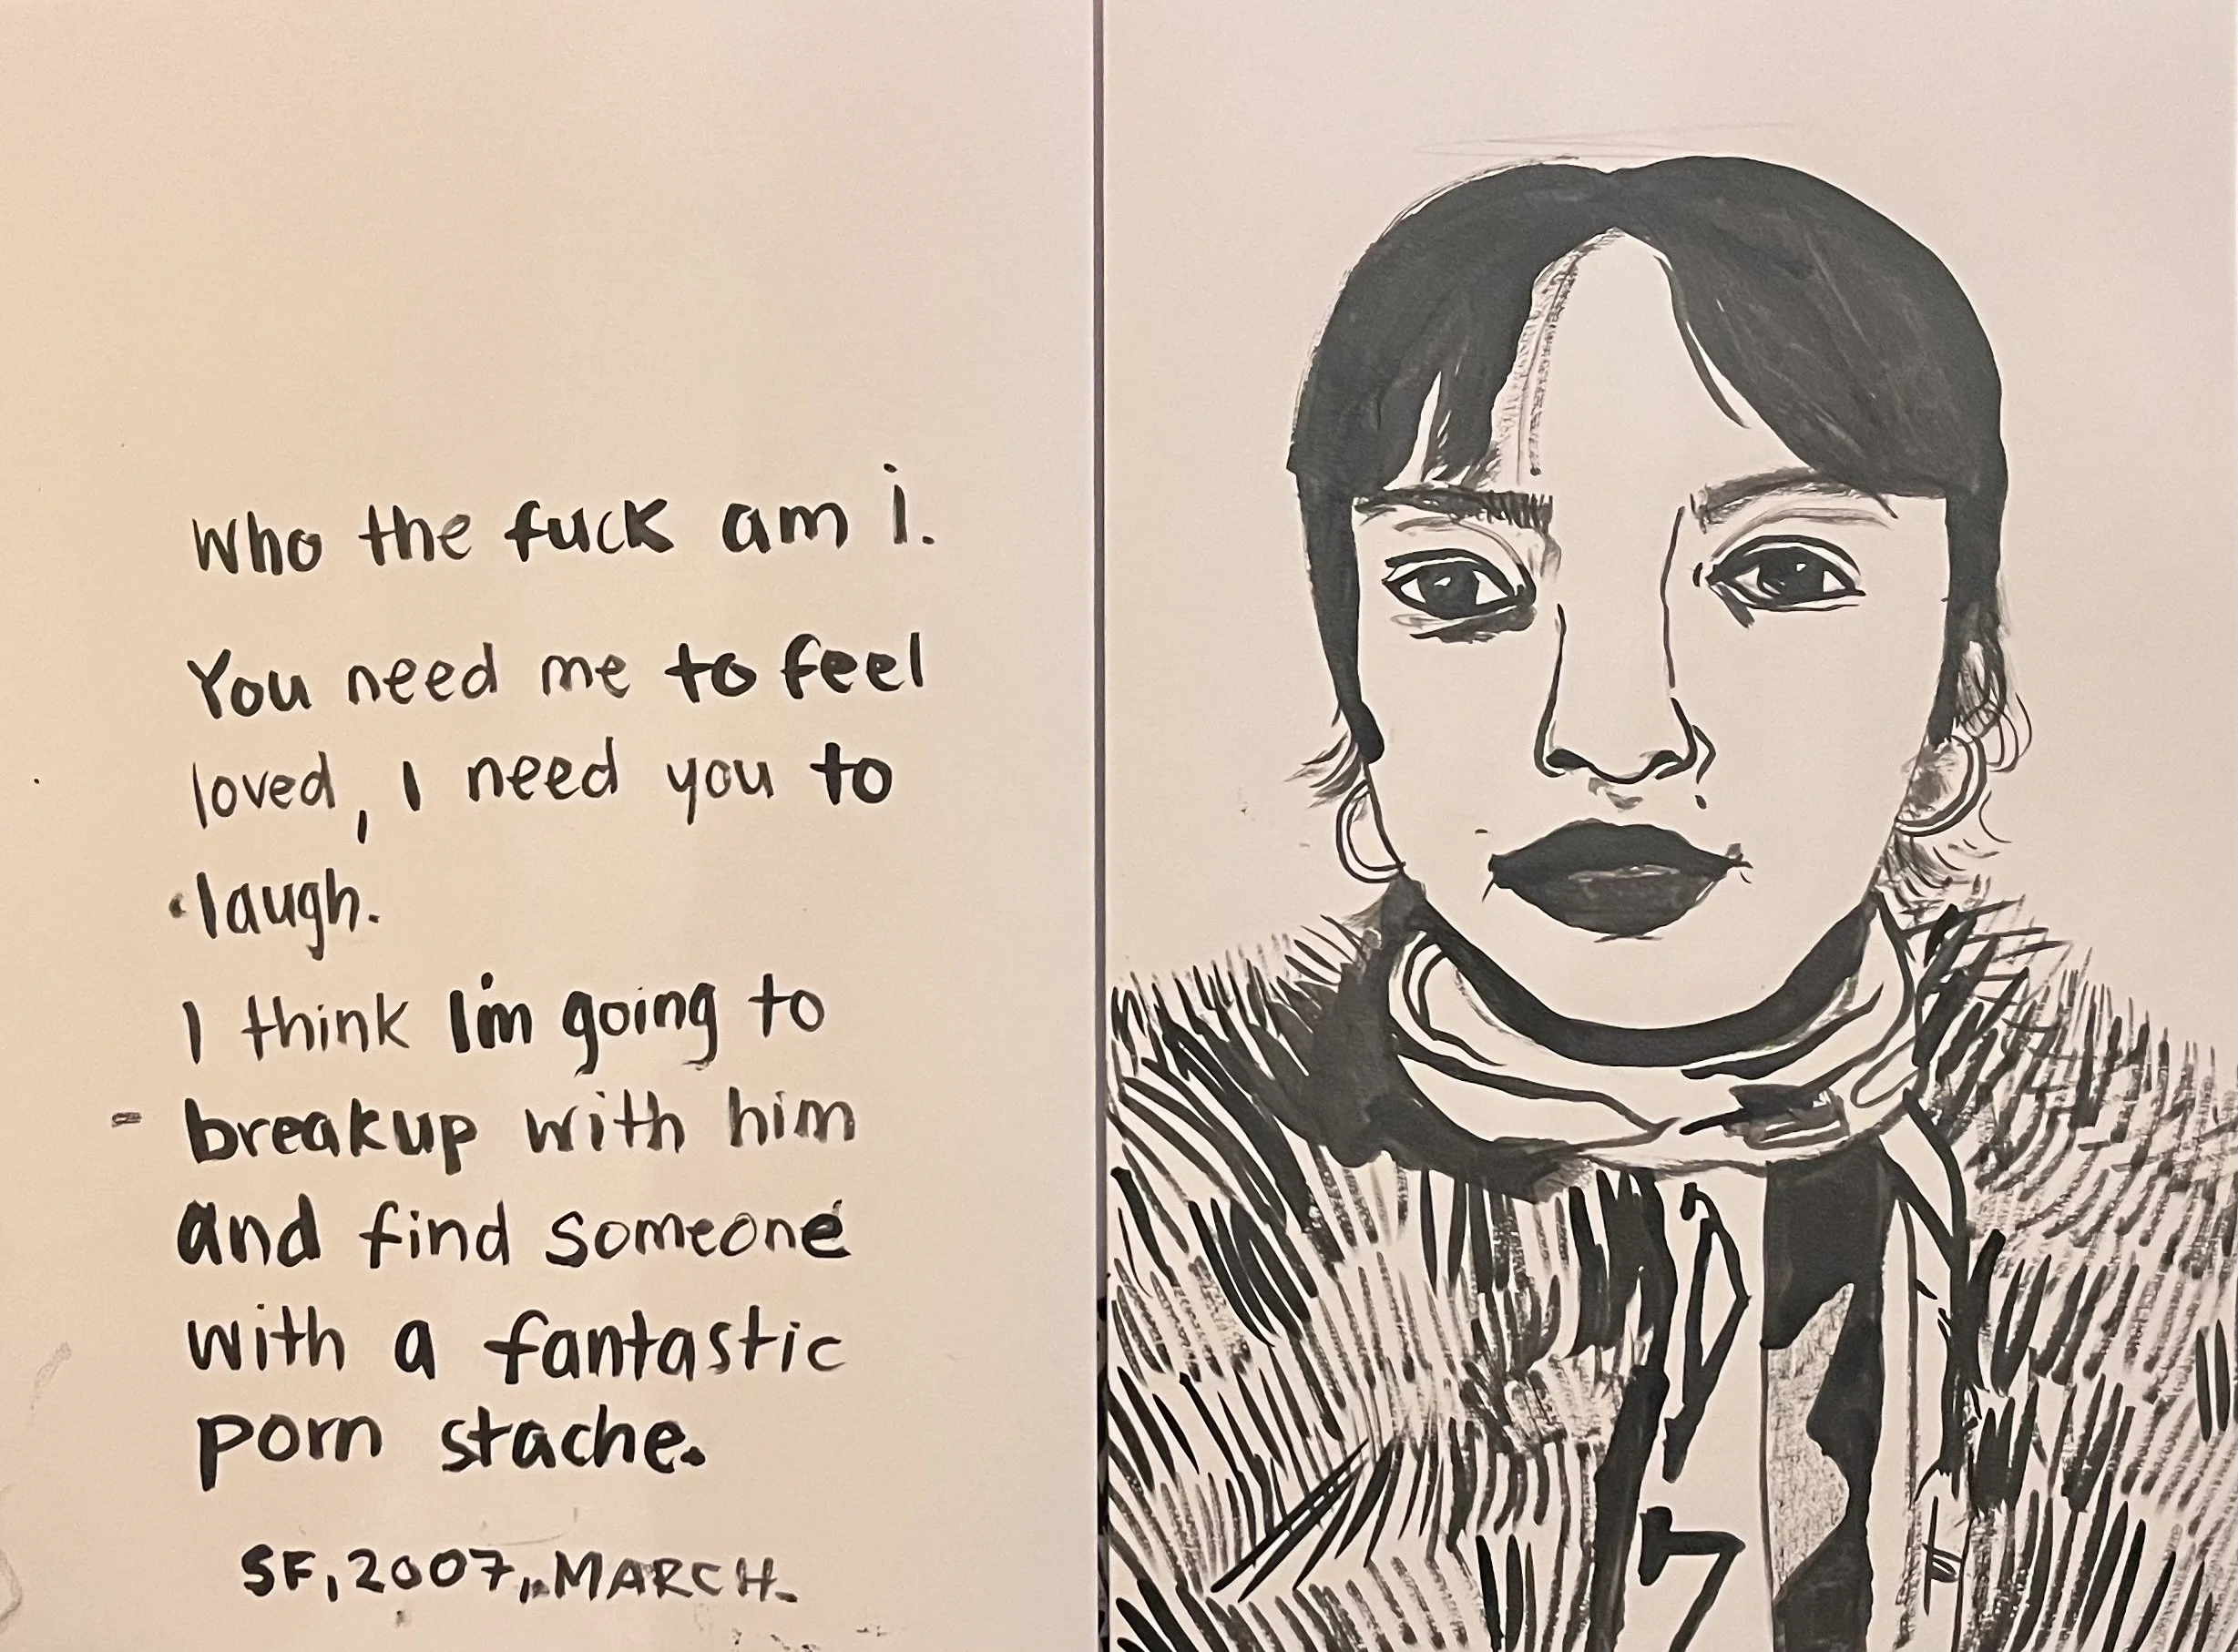 Who the fuck am i.
You need me to feel
loved, I need you to
laugh.
I think I'm going to
breakup with him
and find someone
with a fantastic
porn stache.
SF, 2007, MARCH.